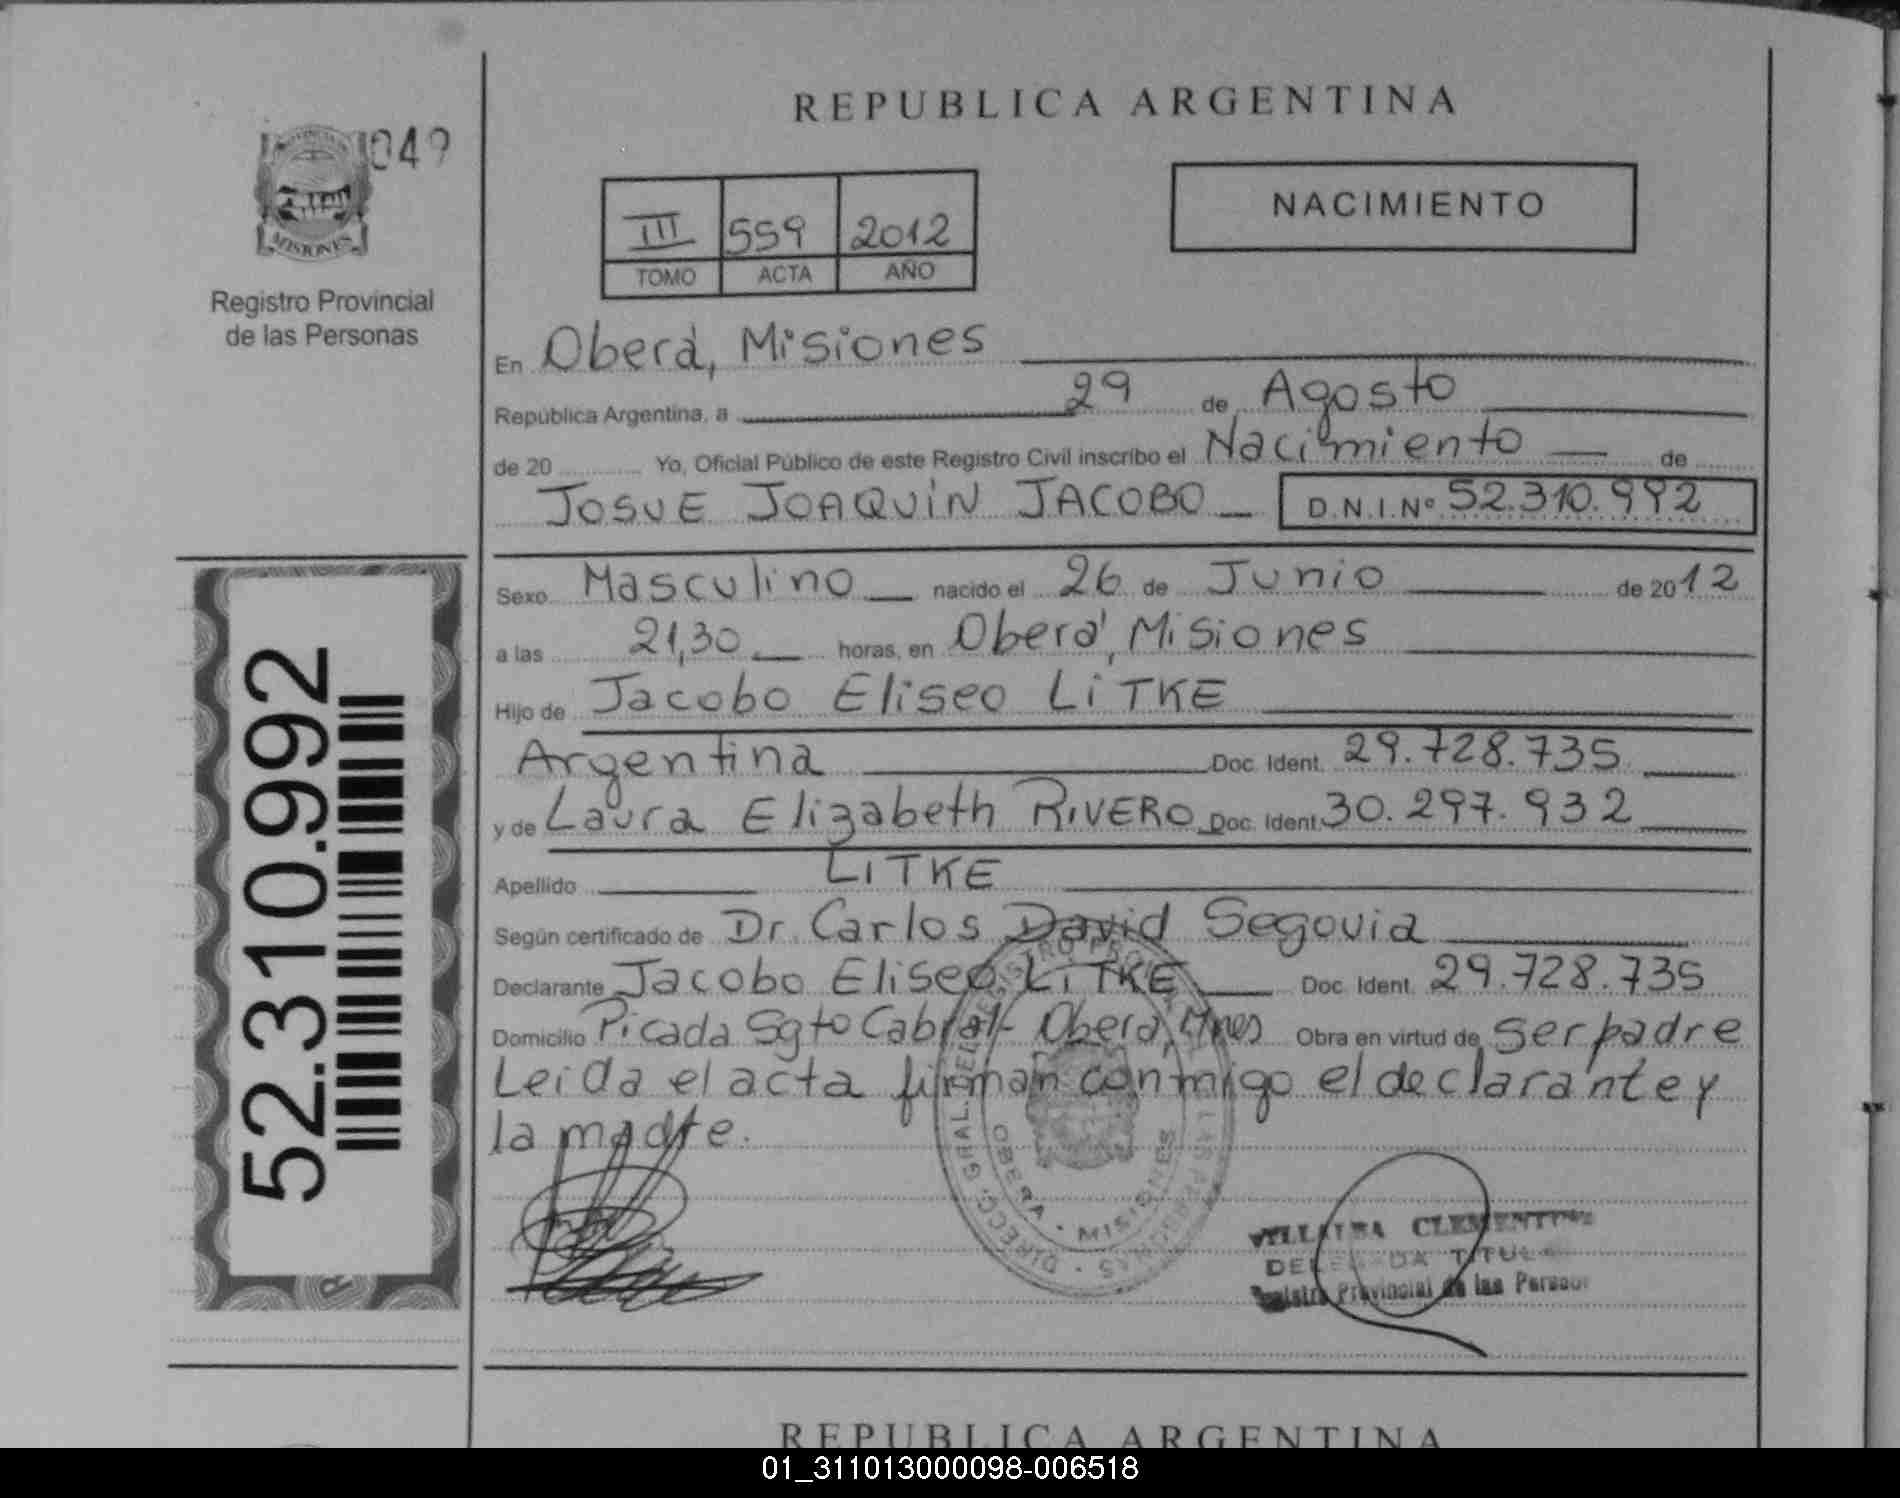 REPUBLICA ARGENTINA
049
MISIONES
Registro Provincial
de las Personas
NACIMIENTO
III 559 2012
TOMO ACTA AÑO
En Oberá, Misiones
República Argentina, a 29 de Agosto
de 20 Yo, Oficial Público de este Registro Civil inscribo el Nacimiento de
JOSUE JOAQUÍN JACOBO D.N.I.Nº 52.310.992
Sexo Masculino nacido el 26 de Junio de 2012
a las 21,30 horas, en Oberá, Misiones
Hijo de Jacobo Eliseo LITKE
Argentina Doc. Ident. 29.728.735
y de Laura Elizabeth RIVERO Doc. Ident. 30.297.932
Apellido LITKE
Según certificado de Dr. Carlos David Segovia
Declarante Jacobo Eliseo LITKE Doc. Ident. 29.728.735
Domicilio Picada Sgto Cabral - Oberá, Mnes Obra en virtud de ser padre
Leida el acta firman conmigo el declarante y
la madre.
52.310.992
OBERA - MISIONES
VILLALBA CLEMENTINA
DELEGADA TITULAR
Registro Provincial de las Personas
REPUBLICA ARGENTINA
01_311013000098-006518